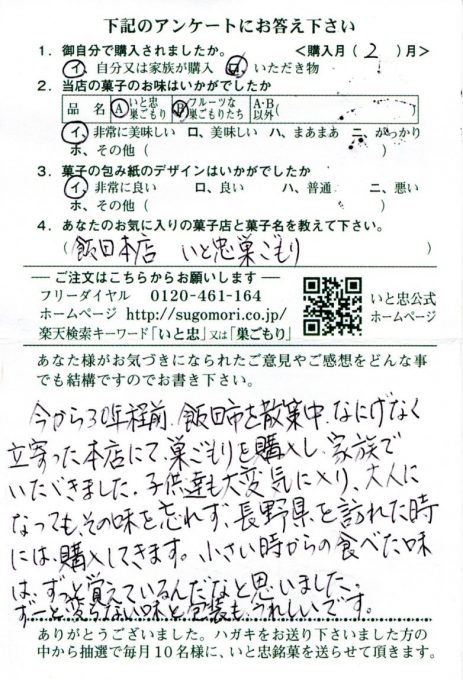 下記のアンケートにお答え下さい
1. 御自分で購入されましたか。 <購入月( 2 )月>
イ、自分又は家族が購入 ロ、いただき物
2. 当店の菓子のお味はいかがでしたか
品名 A いと忠巣ごもり B フルーツな巣ごもりたち A・B以外(
イ、非常に美味しい ロ、美味しい ハ、まあまあ ニ、がっかり
ホ、その他(
3. 菓子の包み紙のデザインはいかがでしたか
イ、非常に良い ロ、良い ハ、普通 ニ、悪い
ホ、その他(
4. あなたのお気に入りの菓子店と菓子名を教えて下さい。
( 飯田本店 いと忠巣ごもり )
ご注文はこちらからお願いします
フリーダイヤル 0120-461-164
ホームページ http://sugomori.co.jp/
楽天検索キーワード「いと忠」又は「巣ごもり」
いと忠公式
ホームページ
あなた様がお気づきになられたご意見やご感想をどんな事
でも結構ですのでお書き下さい。
今から30年程前、飯田市を散策中、なにげなく
立寄った本店にて、巣ごもりを購入し、家族で
いただきました。子供達も大変気に入り、大人に
なっても、その味を忘れず、長野県を訪れた時
には、購入してきます。小さい時からの食べた味
は、ずっと覚えているんだなと思いました。
ずーと変らない味と包装も、うれしいです。
ありがとうございました。ハガキをお送り下さいました方の
中から抽選で毎月10名様に、いと忠銘菓を送らせて頂きます。